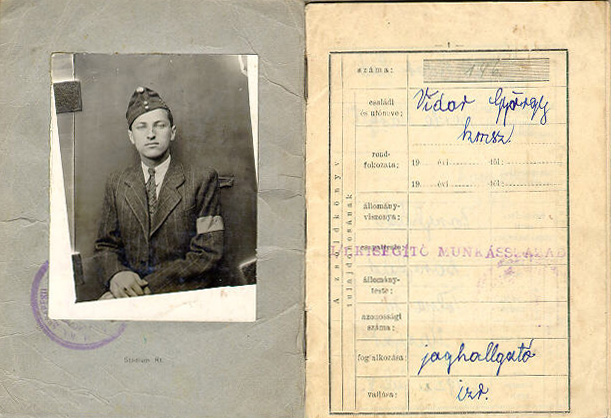 Stádium Rt.
1
A zsoldkönyv
tulajdonosának
száma:
családi
és utóneve:
Vidor György
kmsz.
rend-
fokozata:
19 évi -tól:
19 évi -tól:
állomány-
viszonya:
KISEGÍTŐ MUNKÁSSZÁZAD
állomány-
teste:
azonossági
száma:
foglalkozása:
joghallgató
vallása:
izr.